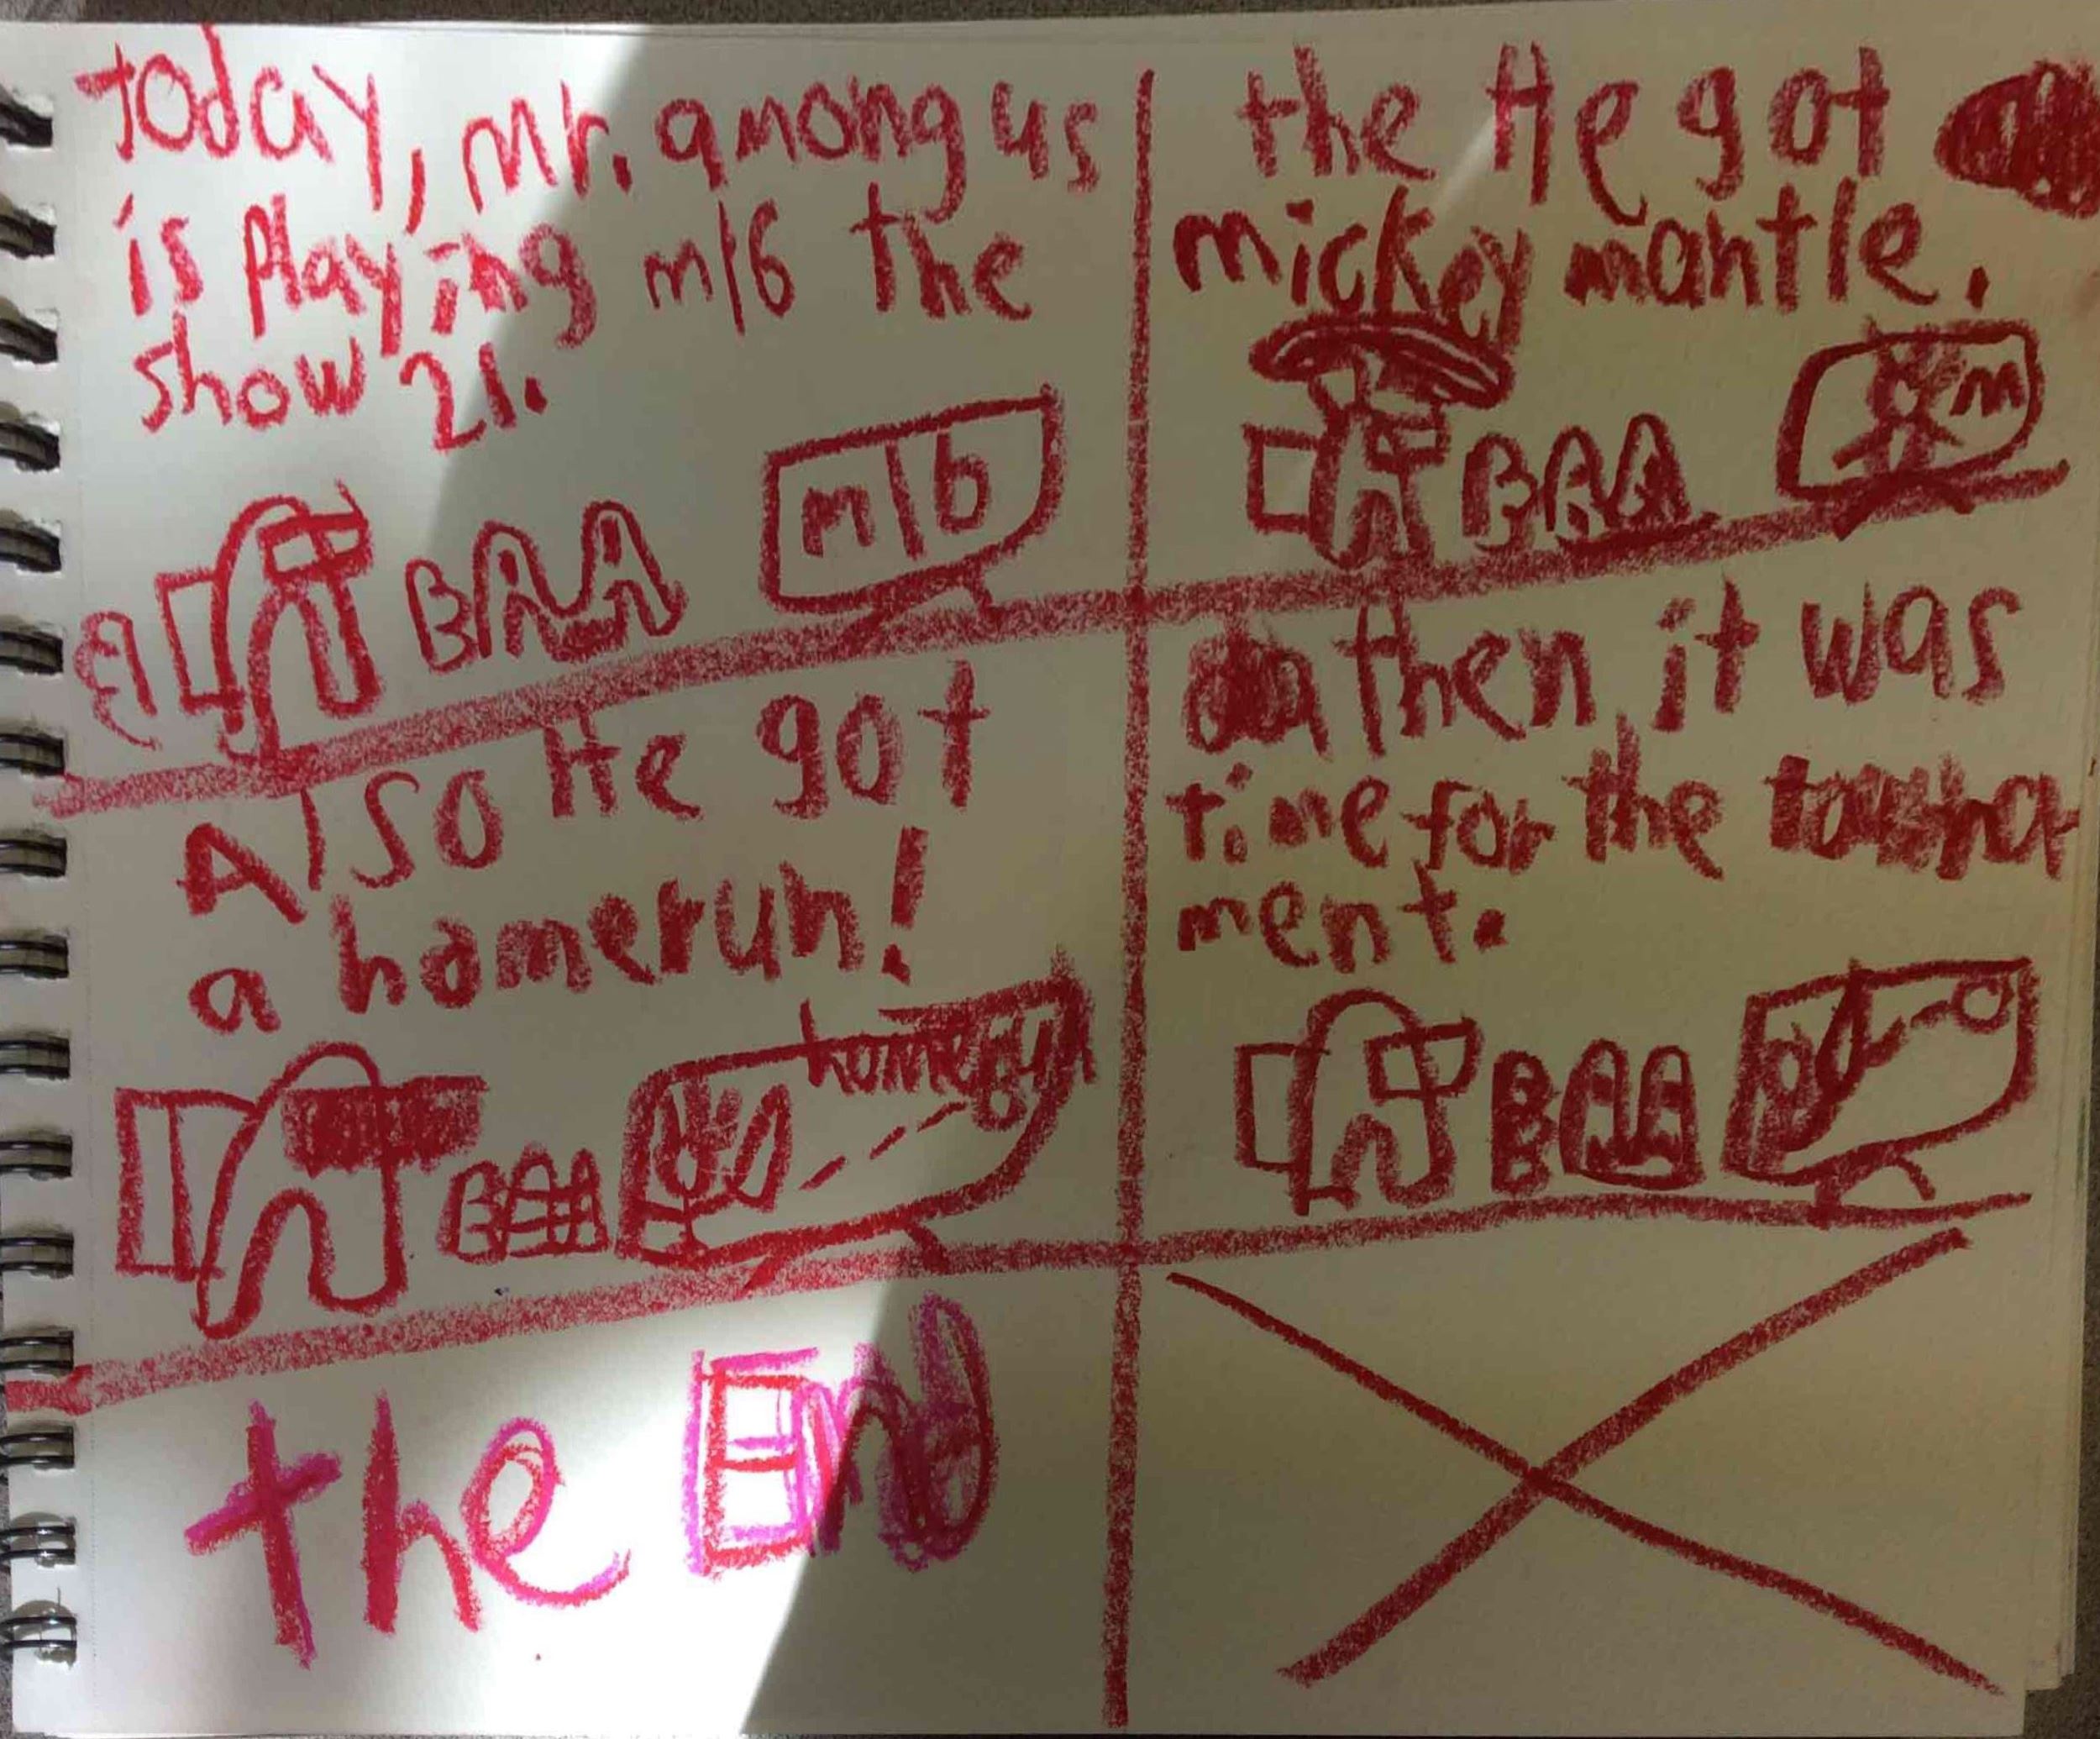 today, Mr. among us
is playing mlb the
show 21.
mlb
the He got
mickey mantle.
m
Also He got
a homerun!
homerun
then, it was
time for the tourna
ment.
the End